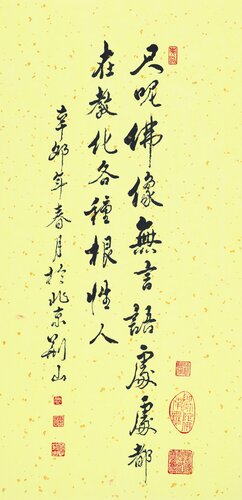 尺呢佛像無言語處處都
在教化各種根性人
辛卯年春月於北京荊山